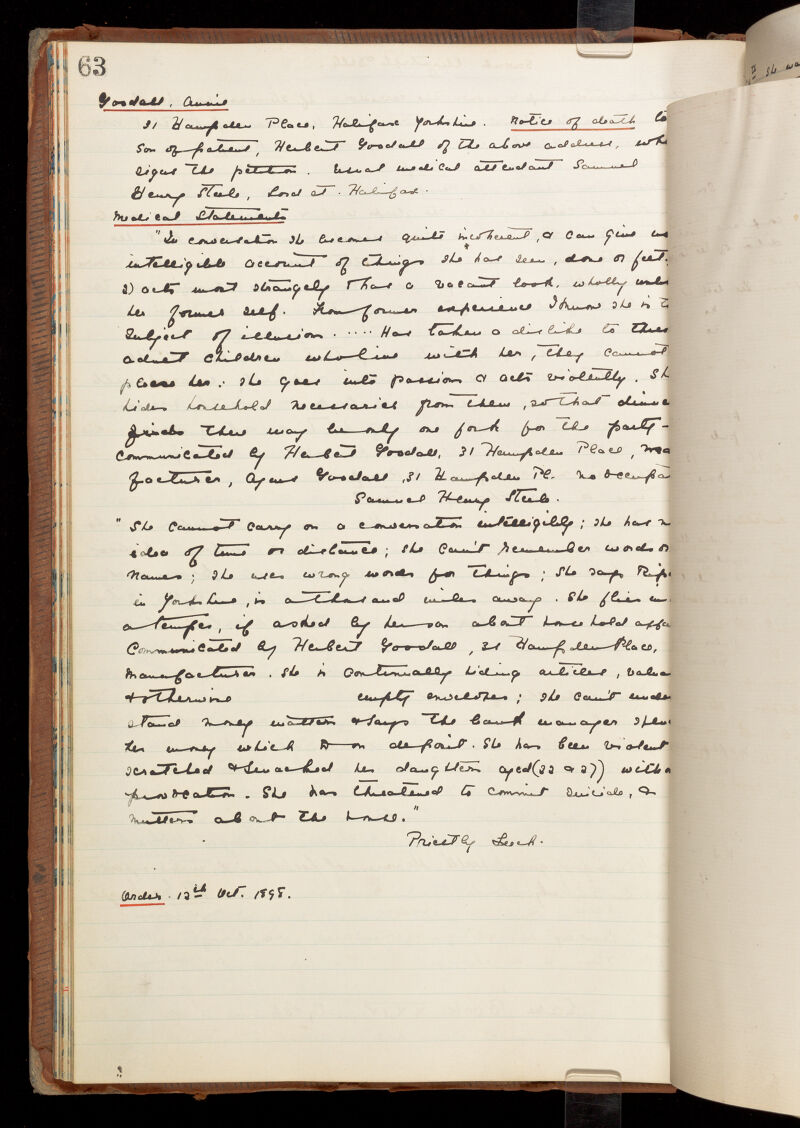 63
Goodall, Annie
31 Hampden Place, Halifax Yorkshire. Notice of death to
Son of patient, Herbert Goodall of the above address, who
signs the petition. Usual medical attendant Samuel
Henry Steele, Lord St. Halifax.
Medical Statements
"In conversation she becomes quite incoherent, & can give no
intelligible account of things she has seen, done or felt.
2) acts most strangely & has a vacant look, wholly unlike
her former self. From former experience I know she is the
subject of illusion. .... Has taken a dislike to three
adult children who live with her, they cannot
please her: she goes into passion & acts violently. Sh
hides household necessaries from them, so that dinne
there may be only one fork for the party -
Communicated by Herbert Goodall, 31 Hampden Place, ma
facturer, Agnes Goodall, 31 Hampden Pl. no occupa
Samuel Henry Steele.
"She cannot carry on a conversation intelligibly; she has n
idea of time or distance; she can't remember words or
names; she uses wrong words for things; she says Rip
in Yorkshire, is a thousand miles away. She flies in
a temper, if asked by her son about household affa
Communicated by Herbert Goodall, 31 Hampden Place,
Manufacturer. She is continually hiding articles, value
& otherwise empty envelopes; she can't under
stand money matters & says the bank manager spen
her money which is on deposit. She has been violent
scratched & smacked her daughters aged (22 & 27) witho
provocation. She has threatened to commit suicide, &
mutters about the house."
Priestley Leech.
Order. 12th Oct. 1898.